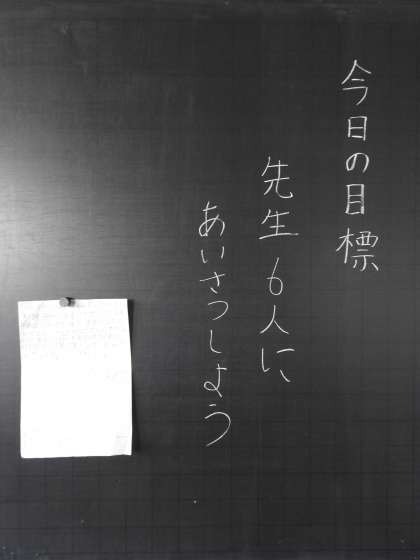 今日の目標
先生6人に
あいさつしよう